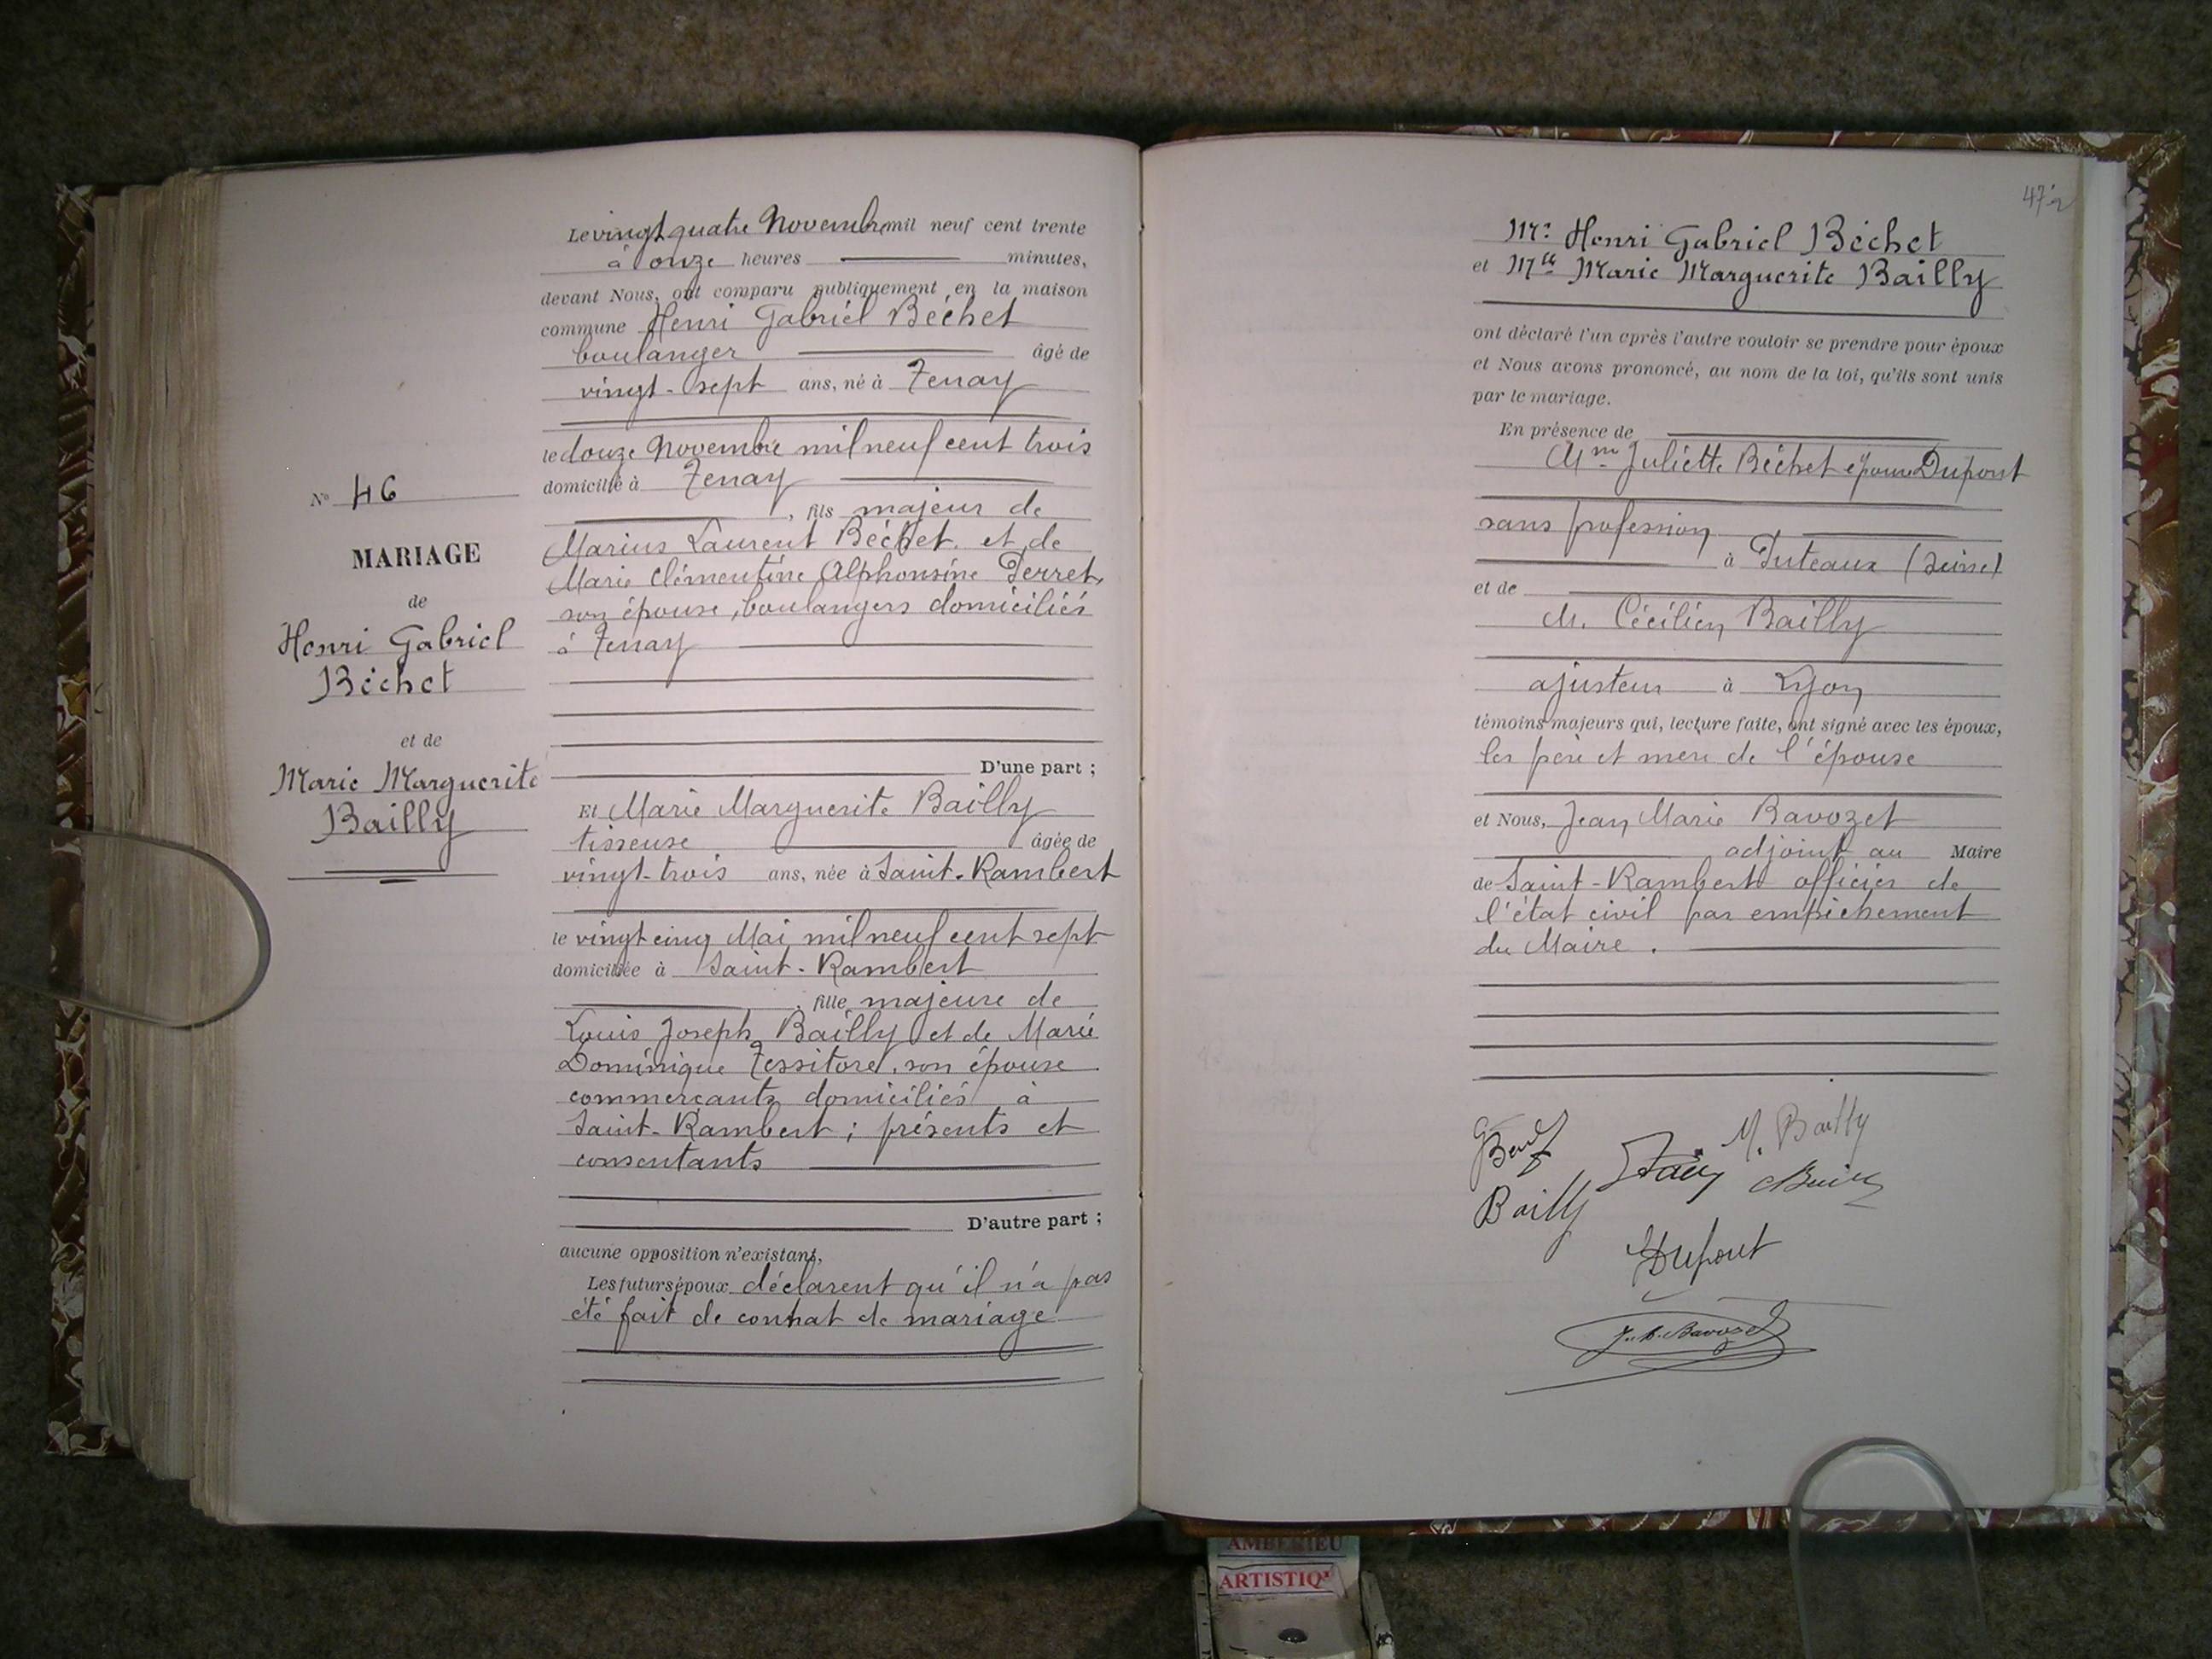 Le vingt quatre Novembre mil neuf cent trente
à onze heures minutes,
devant Nous, ont comparu publiquement en la maison
commune Henri Gabriel Béchet
boulanger âgé de
vingt-sept ans, né à Tenay
le douze Novembre mil neuf cent trois
domicilié à Tenay
, fils majeur de
Marius Laurent Béchet et de
Marie Clémentine Alphonsine Perret,
son épouse, boulangers domiciliés
à Tenay
D'une part ;
N° 46
MARIAGE
de
Henri Gabriel
Béchet
et de
Marie Marguerite
Bailly
Et Marie Marguerite Bailly
tisseuse âgée de
vingt-trois ans, née à Saint-Rambert
le vingt cinq Mai mil neuf cent sept
domiciliée à Saint-Rambert
, fille majeure de
Louis Joseph Bailly et de Marie
Dominique Tessitore, son épouse
commerçants domiciliés à
Saint-Rambert ; présents et
consentants
D'autre part ;
aucune opposition n'existant,
Les futurs époux déclarent qu'il n'a pas
été fait de contrat de mariage
47
Mr Henri Gabriel Béchet
et Mlle Marie Marguerite Bailly
ont déclaré l'un après l'autre vouloir se prendre pour époux
et Nous avons prononcé, au nom de la loi, qu'ils sont unis
par le mariage.
En présence de
Mme Juliette Béchet épouse Dupont
sans profession
à Puteaux (Seine)
et de
M. Cécilien Bailly
ajusteur à Lyon
témoins majeurs qui, lecture faite, ont signé avec les époux,
les père et mère de l'épouse
et Nous, Jean Marie Bavozet
adjoint au Maire
de Saint-Rambert officier de
l'état civil par empêchement
du Maire.
M. Bailly
Bailly
Dupont
J.M. Bavozet
AMBERIEU
ARTISTIQ